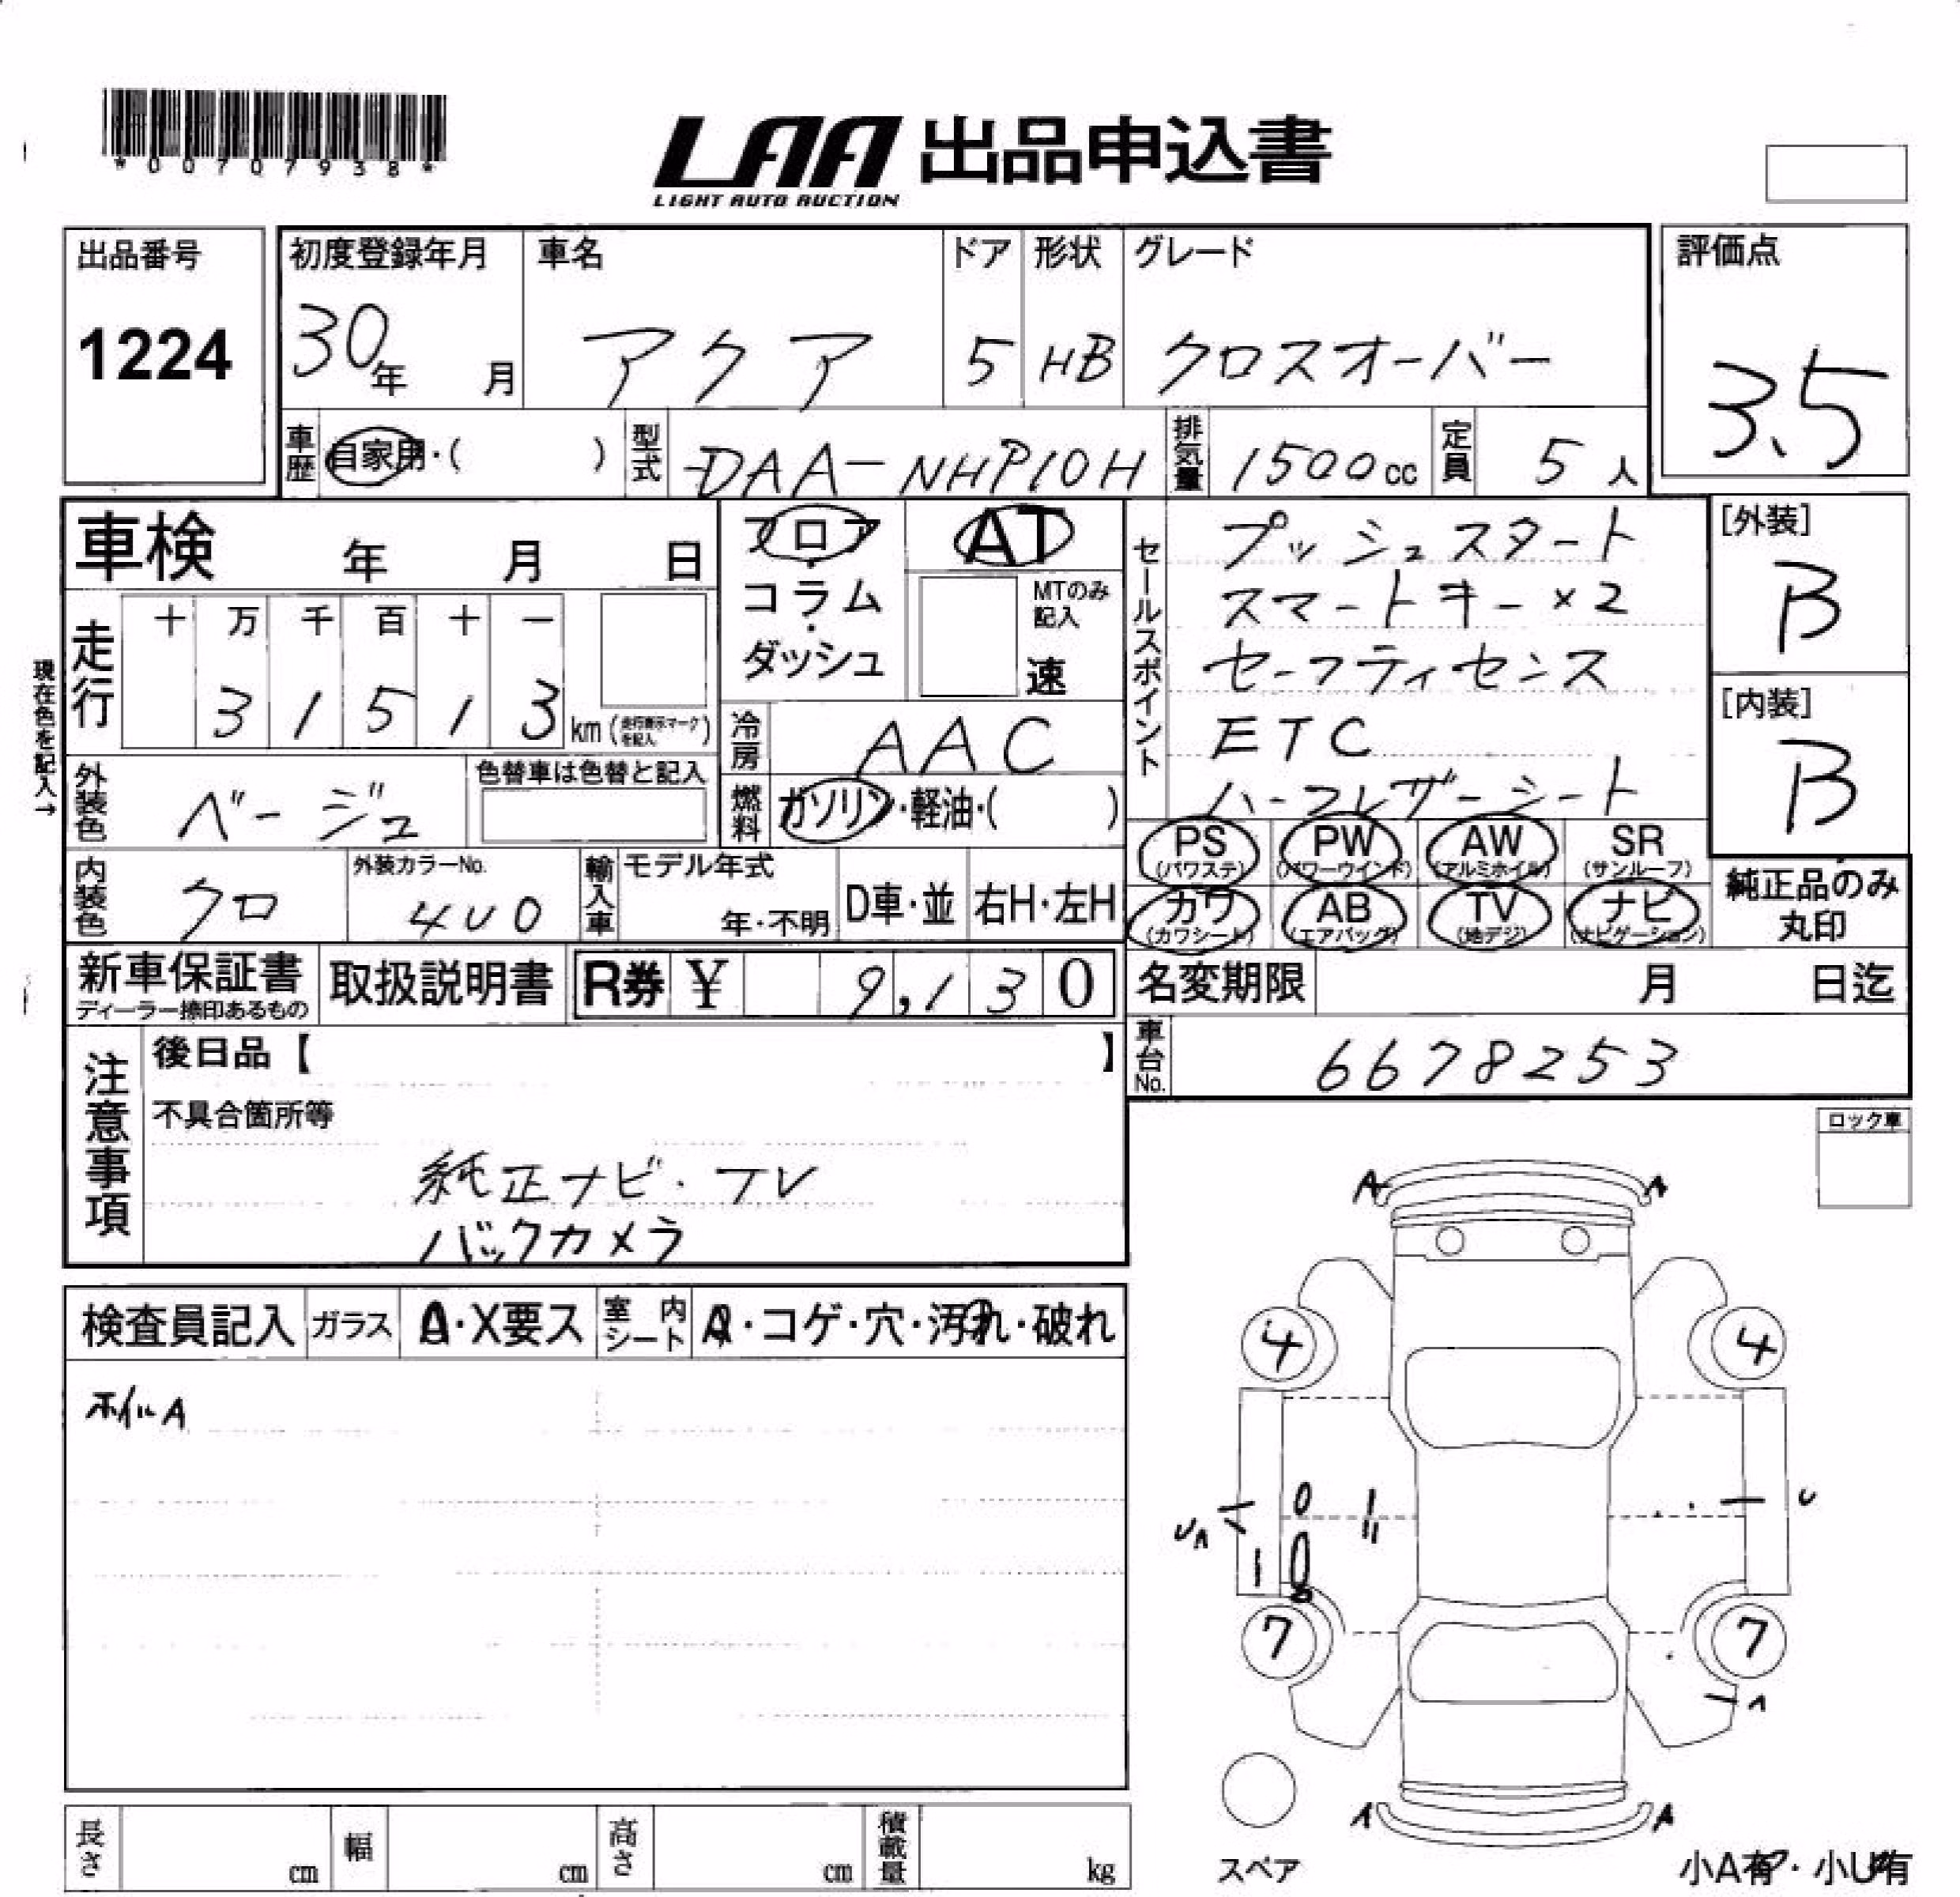 *00707938*
LAA 出品申込書
LIGHT AUTO AUCTION
出品番号
1224
初度登録年月
30年 月
車名
アクア
ドア
5
形状
HB
グレード
クロスオーバー
評価点
3.5
車歴 自家用・( )
型式 DAA-NHP10H
排気量 1500cc
定員 5人
車検 年 月 日
フロア・コラム・ダッシュ
AT
MTのみ記入
速
セールスポイント
プッシュスタート
スマートキー×2
セーフティセンス
ETC
ハーフレザーシート
[外装]
B
[内装]
B
現在色を記入→
走行
十 万 千 百 十 一
3 1 5 1 3 km (走行表示マークを記入)
冷房 AAC
外装色 ベージュ
色替車は色替と記入
燃料 ガソリン・軽油・( )
PS (パワステ) PW (パワーウインド) AW (アルミホイル) SR (サンルーフ)
カワ (カワシート) AB (エアバッグ) TV (地デジ) ナビ (ナビゲーション)
純正品のみ丸印
内装色 クロ
外装カラーNo.
4U0
輸入車
モデル年式
年・不明
D車・並
右H・左H
新車保証書
ディーラー捺印あるもの
取扱説明書
R券 ¥ 9,130
名変期限 月 日迄
車台No. 6678253
注意事項
後日品【 】
不具合箇所等
純正ナビ・TV
バックカメラ
ロック車
検査員記入 ガラス A・X要ス 室内シート A・コゲ・穴・汚れ・破れ
ホイルA
A A
4 4
U
UA
7 7
A
A A
スペア
小A有・小U有
長さ cm 幅 cm 高さ cm 積載量 kg